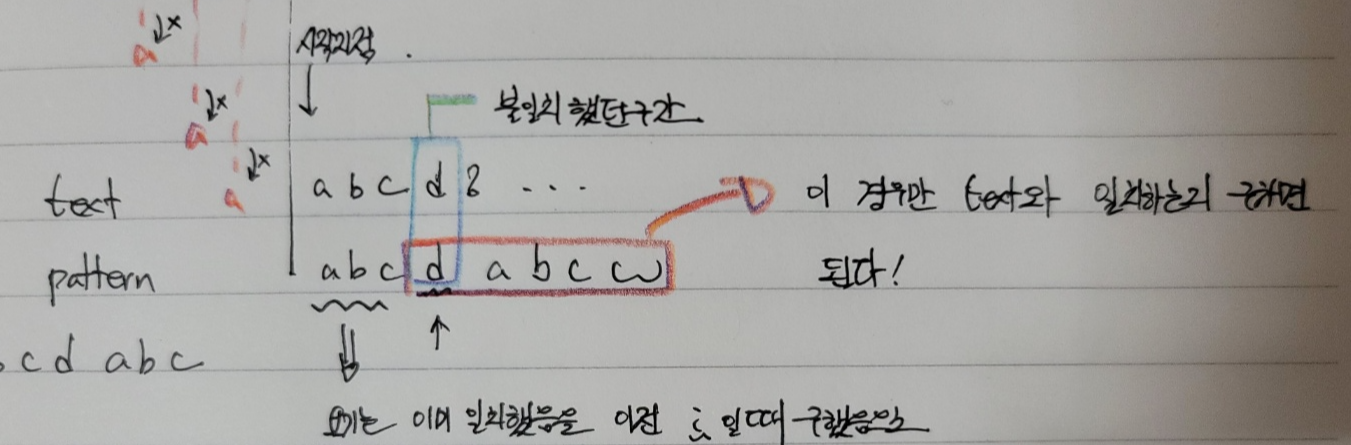 x
a
시작지점.
x
a
불일치 했던 구간
x
a
text a b c d ? ...
이 경우만 text와 일치하는지 구하면
pattern a b c d a b c w
된다!
c d a b c
여기는 이미 일치했음을 이전 i 일때 구했음으